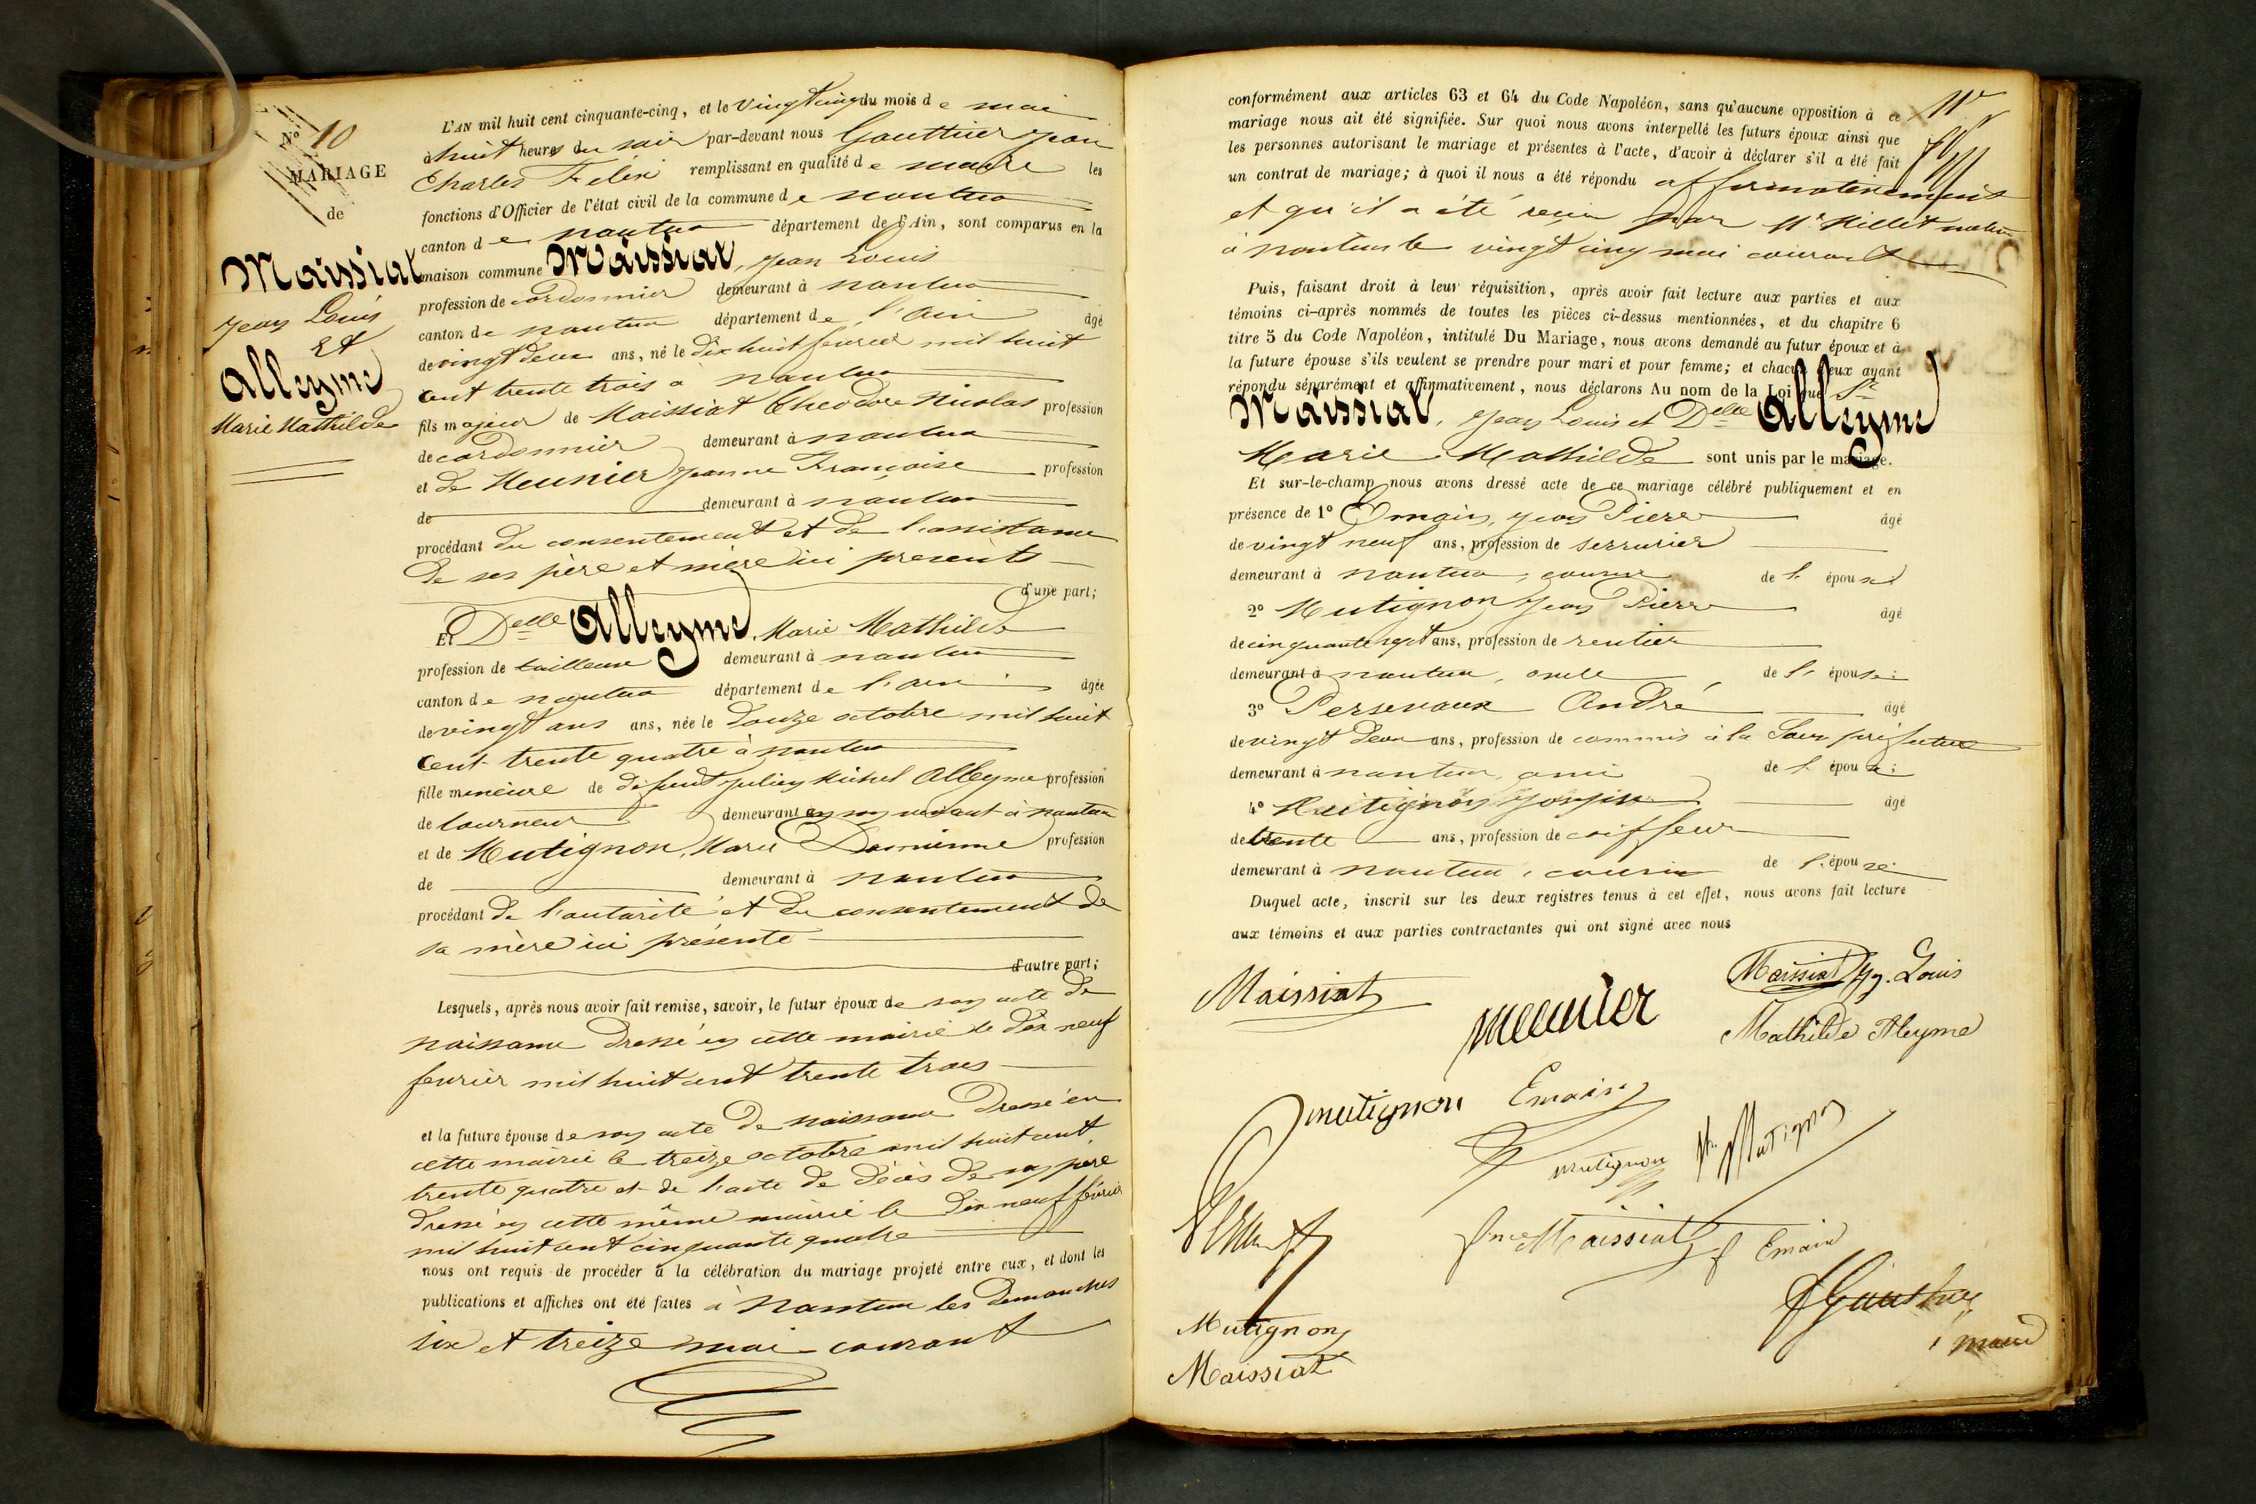 N° 10
MARIAGE
de
Maissiat
Jean Louis
Et
Alleyme
Marie Mathilde
L'AN mil huit cent cinquante-cinq, et le vingt cinq du mois de mai
à huit heures du soir par-devant nous Gauthier Jean
Charles Félix remplissant en qualité de maire les
fonctions d'Officier de l'état civil de la commune de nantua
canton de nantua département de l'Ain, sont comparus en la
maison commune Maissiat, Jean Louis
profession de cordonnier demeurant à nantua
canton de nantua département de l'ain âgé
de vingt deux ans, né le dix huit fevrier mil huit
cent trente trois à nantua
fils majeur de Maissiat Theodore Nicolas profession
de cordonnier demeurant à nantua
et de Meunier Jeanne Françoise profession
de demeurant à nantua
procédant du consentement et de l'assistance
de ses père et mère ici presents
d'une part;
Et Delle Alleyme, Marie Mathilde
profession de tailleuse demeurant à nantua
canton de nantua département de l'ain âgée
de vingt ans ans, née le douze octobre mil huit
cent trente quatre à nantua
fille mineure de défunt Julien Michel Alleyme profession
de tourneur demeurant en son vivant à nantua
et de Mutignon, Marie profession
de demeurant à nantua
procédant de l'autorité et du consentement de
sa mère ici présente
d'autre part;
Lesquels, après nous avoir fait remise, savoir, le futur époux de son acte de
naissance dressé en cette mairie le dix neuf
fevrier mil huit cent trente trois
et la future épouse de son acte de naissance dressé en
cette mairie le treize octobre mil huit cent
trente quatre et de l'acte de décès de son père
dressé en cette même mairie le dix neuf février
mil huit cent cinquante quatre
nous ont requis de procéder à la célébration du mariage projeté entre eux, et dont les
publications et affiches ont été faites à Nantua les dimanches
six et treize mai courant
conformément aux articles 63 et 64 du Code Napoléon, sans qu'aucune opposition à ce
mariage nous ait été signifiée. Sur quoi nous avons interpellé les futurs époux ainsi que
les personnes autorisant le mariage et présentes à l'acte, d'avoir à déclarer s'il a été fait
un contrat de mariage; à quoi il nous a été répondu affirmativement
et qu'il a été reçu par Me Millet notaire
à nantua le vingt cinq mai courant
Puis, faisant droit à leur réquisition, après avoir fait lecture aux parties et aux
témoins ci-après nommés de toutes les pièces ci-dessus mentionnées, et du chapitre 6
titre 5 du Code Napoléon, intitulé Du Mariage, nous avons demandé au futur époux et à
la future épouse s'ils veulent se prendre pour mari et pour femme; et chacun d'eux ayant
répondu séparément et affirmativement, nous déclarons Au nom de la Loi que Sr
Maissiat, Jean Louis et Delle Alleyme
Marie Mathilde sont unis par le mariage.
Et sur-le-champ nous avons dressé acte de ce mariage célébré publiquement et en
présence de 1° Emain, Jean Pierre âgé
de vingt neuf ans, profession de serrurier
demeurant à nantua, cousin de l' épouse
2° Mutignon Jean Pierre âgé
de cinquante sept ans, profession de rentier
demeurant à nantua, oncle de l' épouse;
3° Persevaux André âgé
de vingt deux ans, profession de commis à la Sous préfecture
demeurant à nantua, ami de l' épouse;
4° Mutignon Joseph âgé
de trente ans, profession de coiffeur
demeurant à nantua, cousin de l' épouse.
Duquel acte, inscrit sur les deux registres tenus à cet effet, nous avons fait lecture
aux témoins et aux parties contractantes qui ont signé avec nous
Maissiat
Meunier
Maissiat J. Louis
Mathilde Aleyme
mutignon
Emain
mutignon
Mutignon
Maissiat
Emain
Mutignon
Maissiat